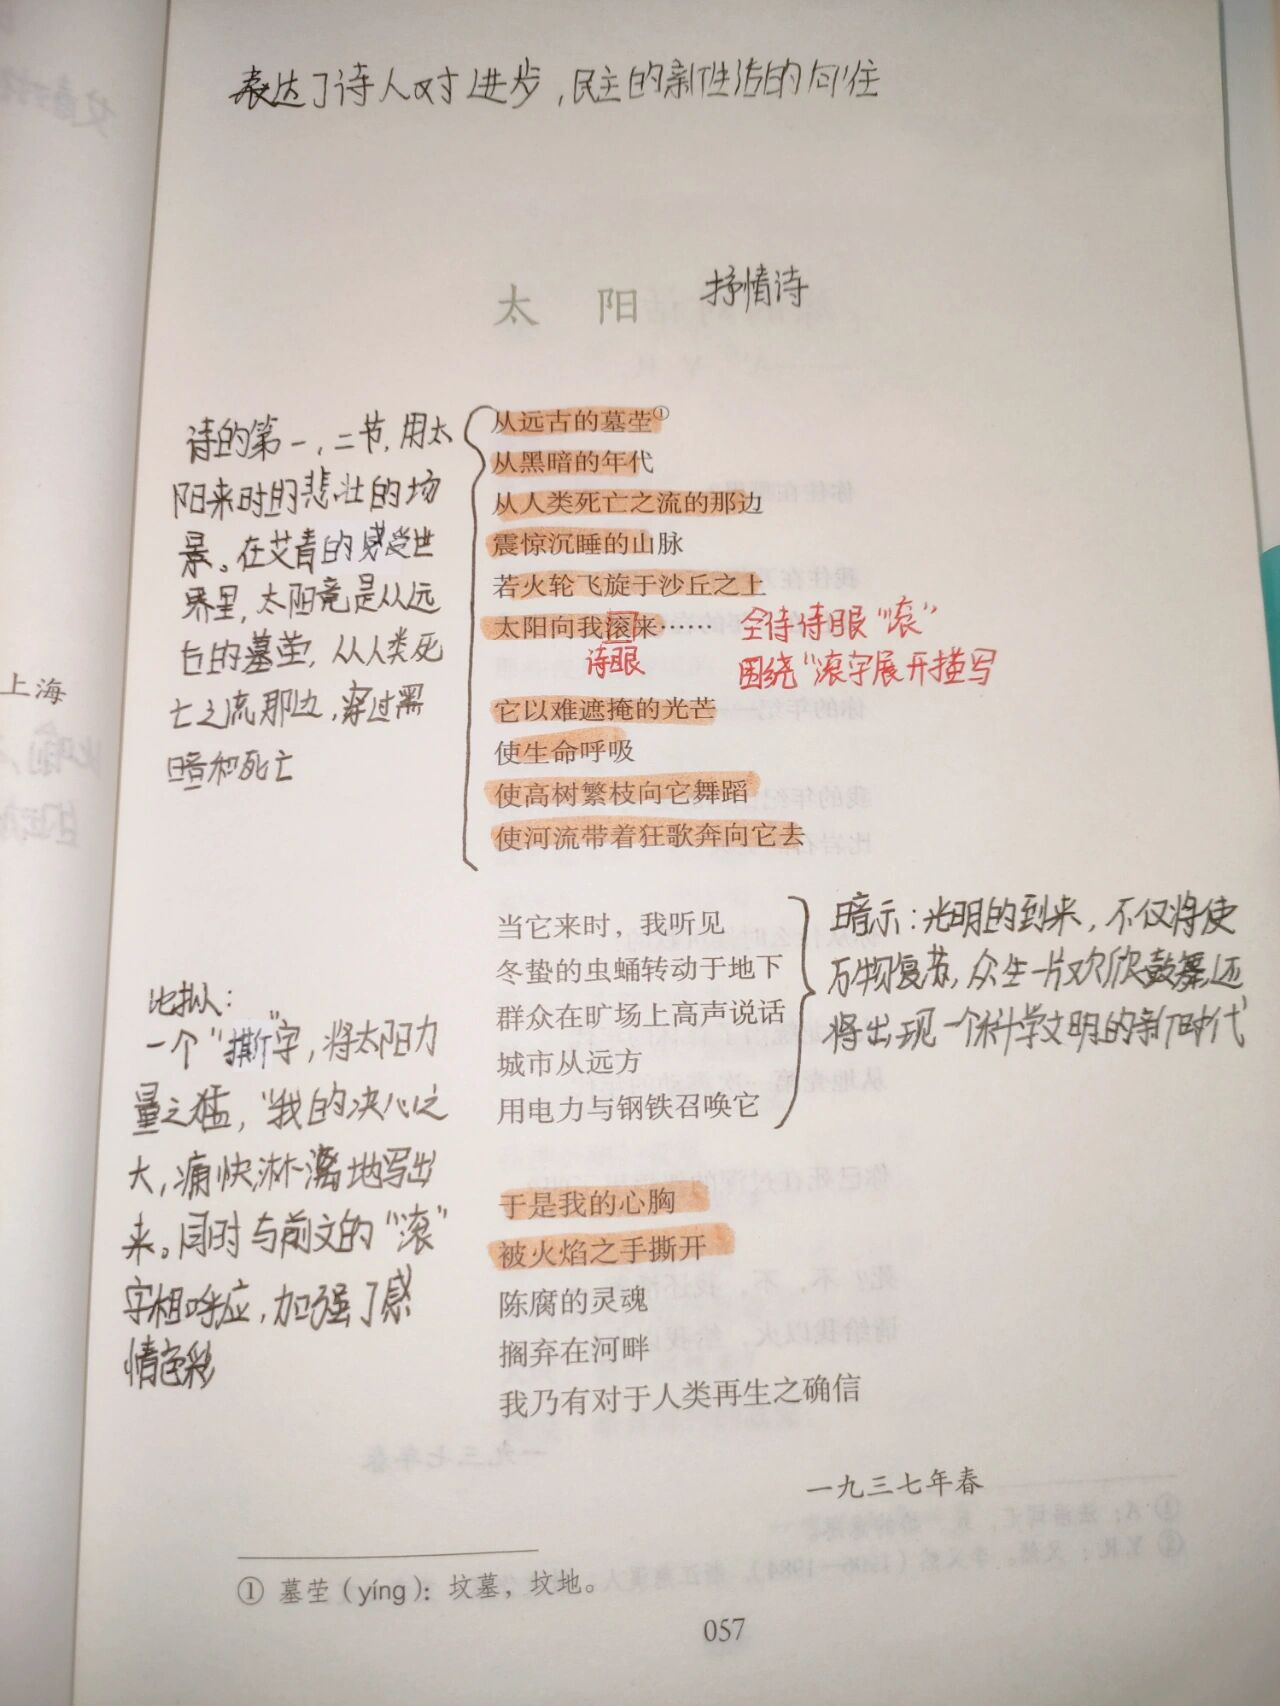 表达了诗人对进步,民主的新性活的向往
太 阳
抒情诗
诗的第一,二节,用太
阳来时的悲壮的场
景。在艾青的感受世
界里,太阳竟是从远
古的墓茔,从人类死
亡之流那边,穿过黑
暗和死亡
从远古的墓茔①
从黑暗的年代
从人类死亡之流的那边
震惊沉睡的山脉
若火轮飞旋于沙丘之上
太阳向我滚来……
诗眼
全诗诗眼“滚”
围绕“滚字展开描写
它以难遮掩的光芒
使生命呼吸
使高树繁枝向它舞蹈
使河流带着狂歌奔向它去
当它来时,我听见
冬蛰的虫蛹转动于地下
群众在旷场上高声说话
城市从远方
用电力与钢铁召唤它
暗示:光明的到来,不仅将使
万物复苏,众生一片欢欣鼓舞,还
将出现一个科学文明的新时代
比拟:
一个“撕”字,将太阳力
量之猛,“我的决心之
大,痛快淋漓地写出
来。同时与前文的“滚”
字相呼应,加强了感
情色彩
于是我的心胸
被火焰之手撕开
陈腐的灵魂
搁弃在河畔
我乃有对于人类再生之确信
一九三七年春
① 墓茔(yíng):坟墓,坟地。
057
上海